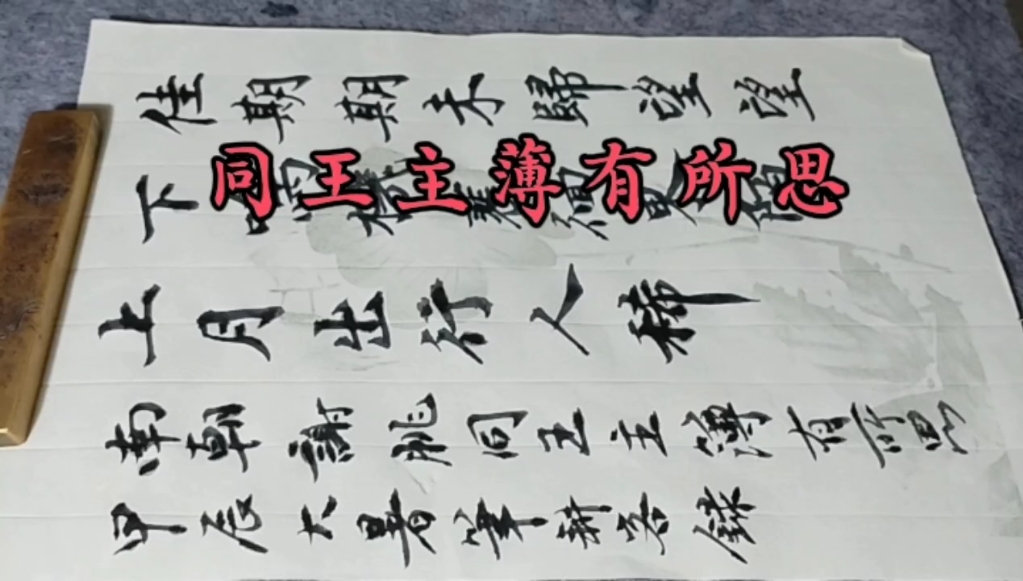 佳期期未歸望望
同王主薄有所思
下鳴機徊東陌
上月出行人稀
南朝謝朓同王主簿有所思
甲辰大暑筆耕客錄